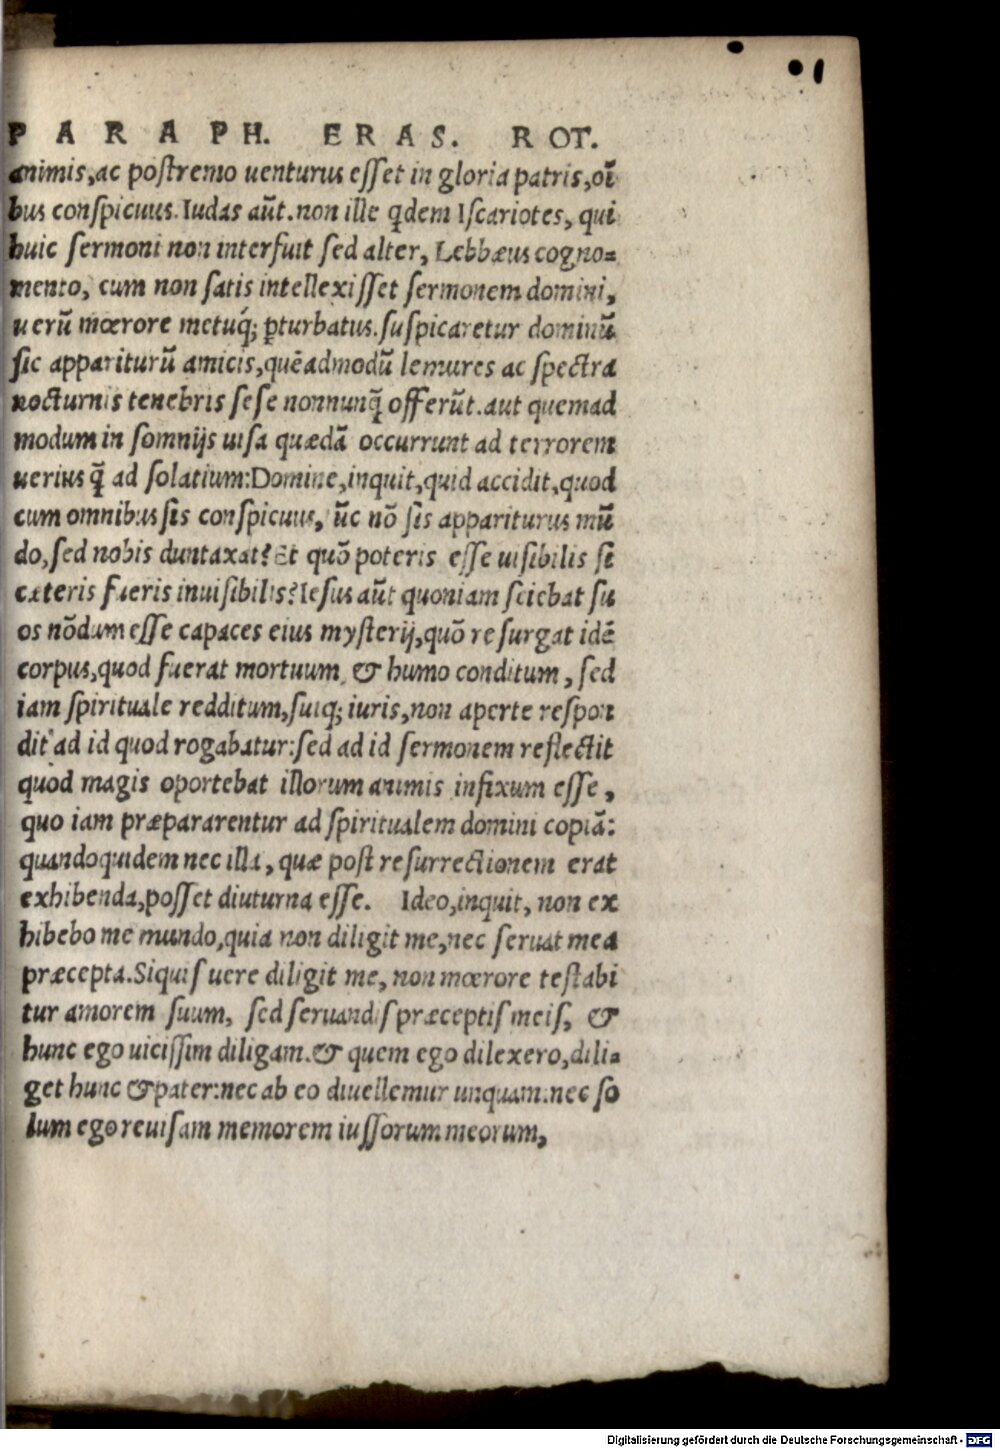 PARAPH. ERAS. ROT.
animis,ac poſtremo uenturus eſſet in gloria patris,oĩ
bus conſpicuus.Iudas aũt.non ille q̃dem Iſcariotes, qui
huic ſermoni non interfuit ſed alter, Lebbæus cogno⸗
mento, cum non ſatis intellexiſſet ſermonem domini,
uerũ mœrore metuq́; ꝑturbatus.ſuſpicaretur dominũ
ſic appariturũ amicis,quẽadmodũ lemures ac ſpectra
nocturnis tenebris ſeſe nonnunq̃ offerũt.aut quemad
modum in ſomnijs uiſa quædã occurrunt ad terrorem
uerius q̃ ad ſolatium:Domine,inquit,quid accidit,quod
cum omnibus ſis conſpicuus, ũc nõ ſis appariturus mũ
do,ſed nobis duntaxat?Et quõ poteris eſſe uiſibilis ſi
cæteris fueris inuiſibilis?Ieſus aũt quoniam ſciebat ſu
os nõdum eſſe capaces eius myſterij,quõ reſurgat idẽ
corpus,quod fuerat mortuum & humo conditum, ſed
iam ſpirituale redditum,ſuiq; iuris,non aperte reſpon
dit ad id quod rogabatur:ſed ad id ſermonem reflectit
quod magis oportebat illorum animis infixum eſſe,
quo iam præpararentur ad ſpiritualem domini copiã:
quandoquidem nec illa, quæ poſt reſurrectionem erat
exhibenda,poſſet diuturna eſſe. Ideo,inquit, non ex
hibebo me mundo,quia non diligit me,nec ſeruat mea
præcepta.Siquiſ uere diligit me, non mœrore teſtabi
tur amorem ſuum, ſed ſeruandiſ præceptiſ meiſ, &
hunc ego uiciſſim diligam.& quem ego dilexero,dili⸗
get hunc & pater:nec ab eo diuellemur unquam.nec ſo
lum ego reuiſam memorem iuſſorum meorum,
Digitalisierung gefördert durch die Deutsche Forschungsgemeinschaft - DFG